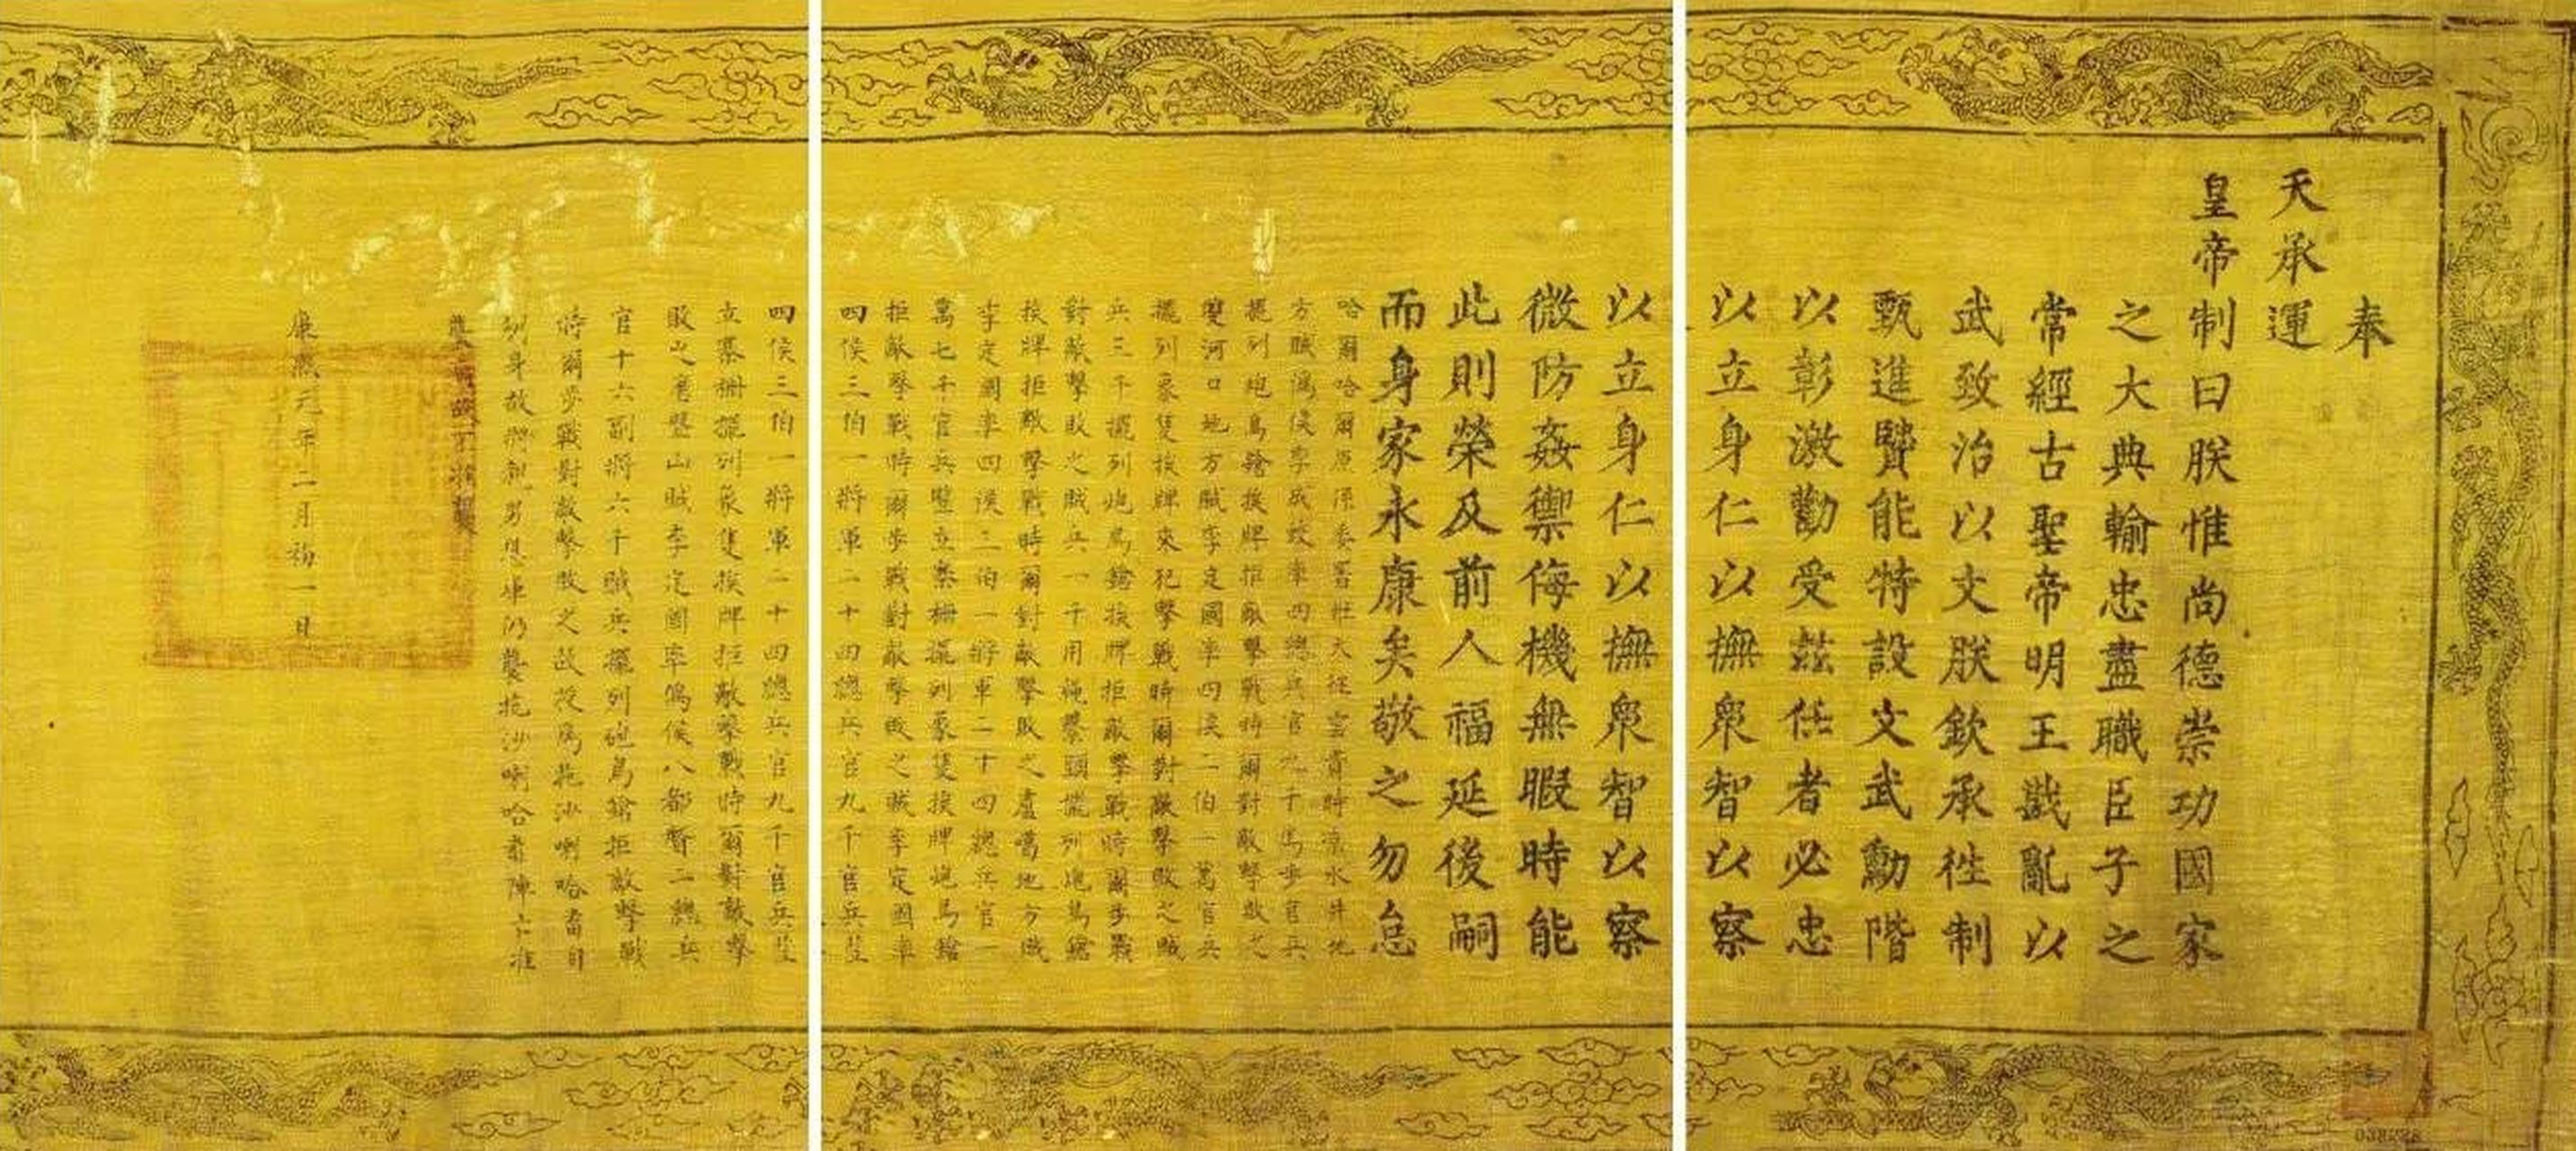 奉
天承運
皇帝制曰朕惟尚德崇功國家
之大典輸忠盡職臣子之
常經古聖帝明王戡亂以
武致治以文朕欽承徃制
甄進賢能特設文武勳階
以彰激勸受茲任者必忠
以立身仁以撫衆智以察
以立身仁以撫衆智以察
微防姦禦侮機無暇時能
此則榮及前人福延後嗣
而身家永康矣敬之勿怠
哈爾哈爾原係委署壯大征雲貴時涼水井地
方賊偽侯李成蛟率四總兵官九千馬步官兵
擺列砲鳥鎗挨牌拒敵擊戰時爾對敵擊敗之
雙河口地方賊李定國率四侯二伯一萬官兵
擺列象隻挨牌來犯擊戰時爾對敵擊敗之賊
兵三千擺列砲鳥鎗挨牌拒敵擊戰時爾步戰
對敵擊敗之賊兵一千用繩攀頭擺列砲鳥鎗
挨牌拒敵擊戰時爾對敵擊敗之魯噶地方賊
李定國率四侯三伯一將軍二十四總兵官一
萬七千官兵豎立寨柵擺列象隻挨牌砲鳥鎗
拒敵擊戰時爾步戰對敵擊敗之賊李定國率
四侯三伯一將軍二十四總兵官九千官兵豎
四侯三伯一將軍二十四總兵官九千官兵豎
立寨柵擺列象隻挨牌拒敵擊戰時爾對敵擊
敗之磨盤山賊李定國率偽侯八都督二總兵
官十六副將六千賊兵擺列砲鳥鎗拒敵擊戰
時爾步戰對敵擊敗之故授爲拖沙喇哈番自
身故將親男仍襲拖沙喇哈番陣亡准
襲
康熙元年二月初一日